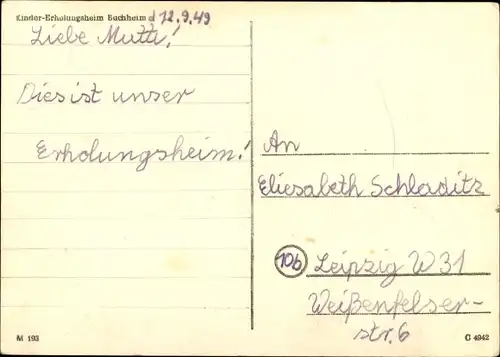 Kinder-Erholungsheim Buchheim d 12.9.49
Liebe Mutti!
Dies ist unser
Erholungsheim!
An
Eliesabeth Schladitz
10b Leipzig W 31
Weißenfelser-
str. 6
M 193
C 4942